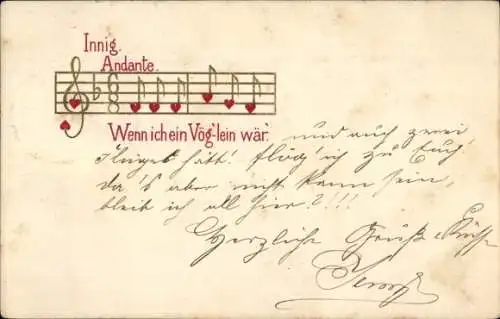 Innig.
Andante.
6
8
Wenn ich ein Vög'lein wär'.
und auch zwei
Flügel hätt'! flög' ich zu Euch
da's aber nicht kann sein,
bleib ich all hier?!!!
Herzliche Grüße & Küsse